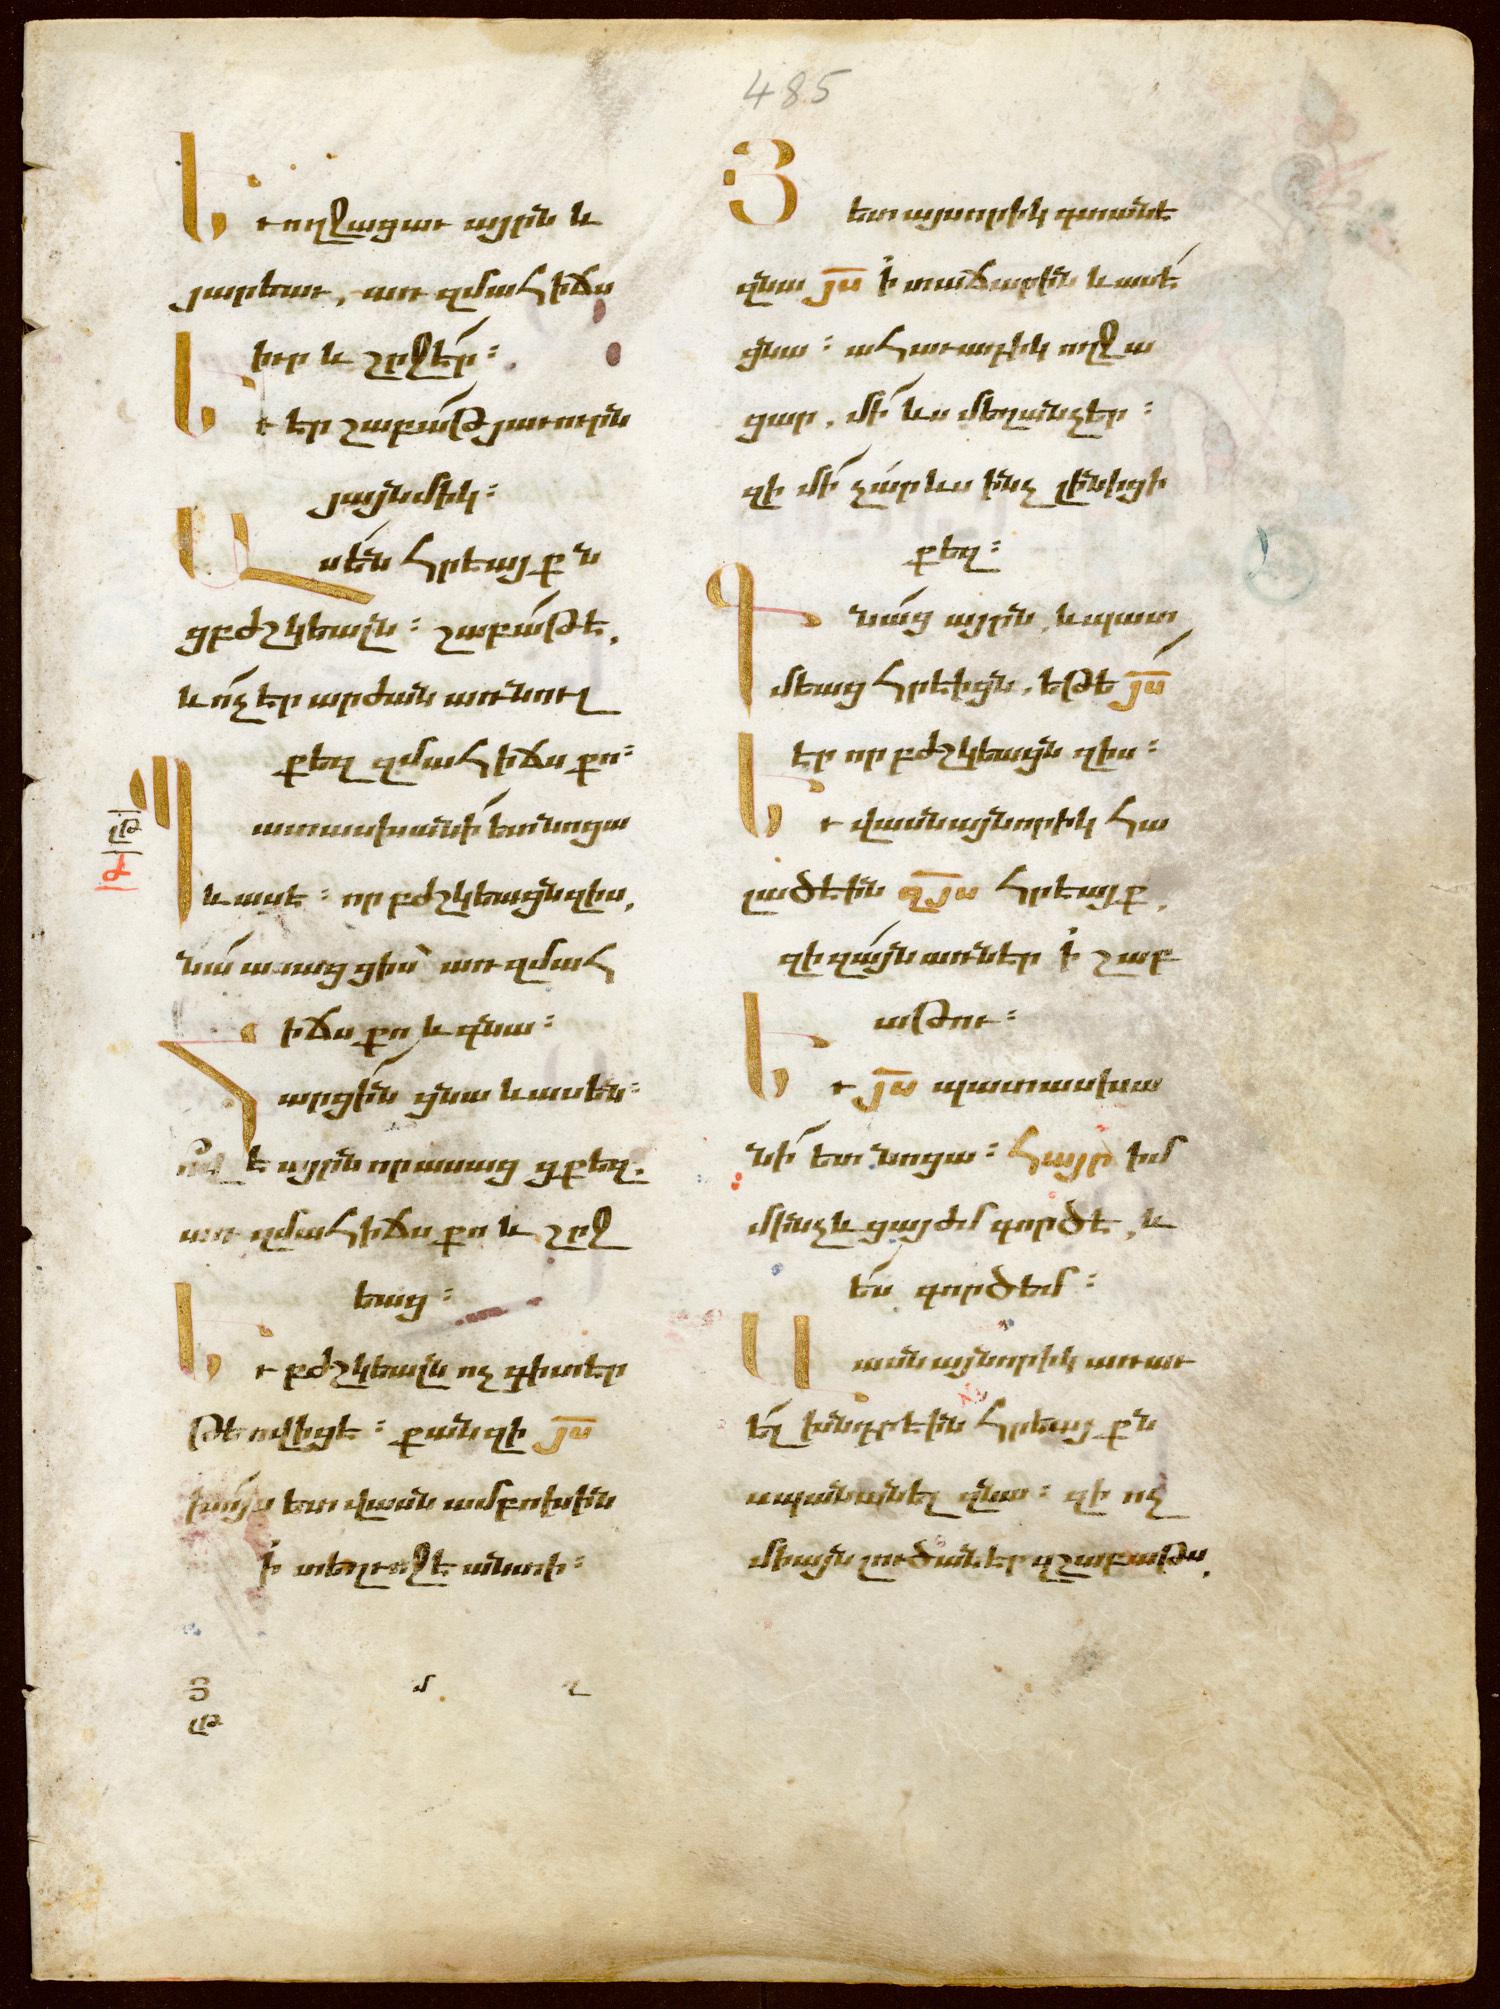 485
Եւ ողջացաւ այրն և
յարեաւ, առ զմահիճս
իւր և շրջէր։
Եւ էր շաբաթ յաւուրն
յայնմիկ։
Ասեն հրեայքն
ցբժշկեալն։ շաբաթ է,
և ոչ էր արժան առնուլ
քեզ զմահիճս քո։
Պատասխանի ետ նոցա
և ասէ։ որ բժշկեացն զիս,
նա ասաց ցիս՝ առ զմահ
իճս քո և գնա։
Հարցին ցնա և ասեն։
ով է այրն որ ասաց ցքեզ.
առ զմահիճս քո և շրջ
եաց։
Եւ բժշկեալն ոչ գիտէր
թե ով իցե։ քանզի յս
խոյս ետ վասն ամբոխին
ի տեղւոջէ անտի։
Յ մ ղ
ԺԹ
Յետ այսորիկ գտանէ
զնա յս ի տաճարին և ասէ
ցնա։ ահաւադիկ ողջա
ցար, մի ևս մեղանչեր։
զի մի չար ևս ինչ լինիցի
քեզ։
Գնաց այրն, և պատ
մեաց հրէիցն, եթե յս
էր որ բժշկեացն զիս։
Եւ վասն այնորիկ հա
լածէին զյս հրեայք,
զի զայն առնէր ի շաբ
աթու։
Եւ յս պատասխա
նի ետ նոցա։ հայր իմ
մինչև ցայժմ գործէ, և
ես գործեմ։
Վասն այնորիկ առաւ
ել խնդրէին հրեայքն
սպանանել զնա։ զի ոչ
միայն լուծանէր զշաբաթս,